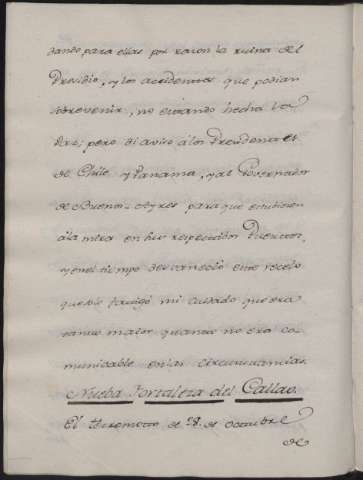 dando para ellas por razon la ruina del
Presidio, y los accidentes que podian
sobrevenir, no estando hecha la
Paz; pero di aviso â los Presidentes
de Chile y Panama, y al Governador
de Buenos-Ayres para que estubiesen
â la mira en sus respectivos Puertos,
y en el tiempo desvanecio este recelo
que me fatigó mi cuidado que era
tanto maior quanto no era co-
municable en las circunstancias.
Nueba Fortaleza del Callao.
El terremoto de 28. de Octubre
de